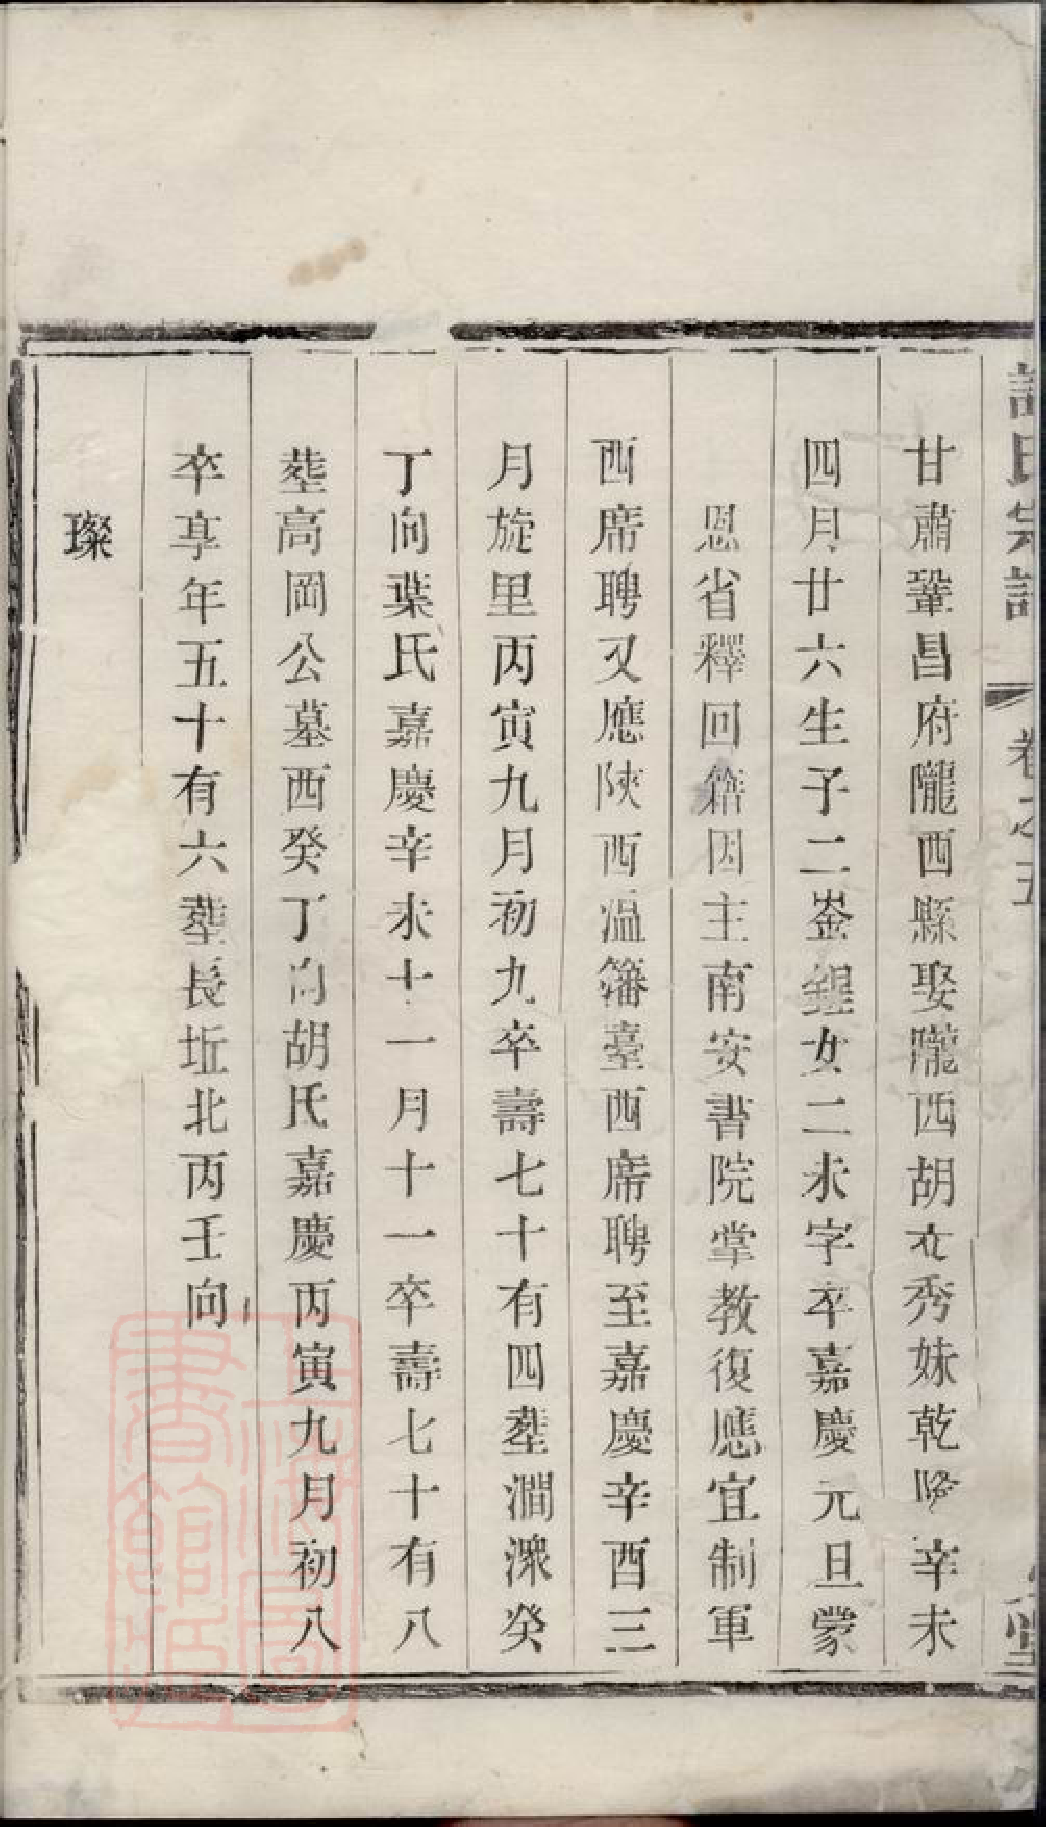 氏宗譜 卷之五 堂
甘肅鞏昌府隴西縣娶隴西胡衣秀妹乾隆辛未
四月廿六生子二崟鋥女二未字卒嘉慶元旦蒙
恩省釋回籍因主南安書院掌教復應宜制軍
西席聘又應陝西温籓臺西席聘至嘉慶辛酉三
月旋里丙寅九月初九卒壽七十有四塟澗濼癸
丁向葉氏嘉慶辛未十一月十一卒壽七十有八
塟高岡公墓西癸丁向胡氏嘉慶丙寅九月初八
卒享年五十有六塟長坵北丙壬向
璨
上海圖書館藏